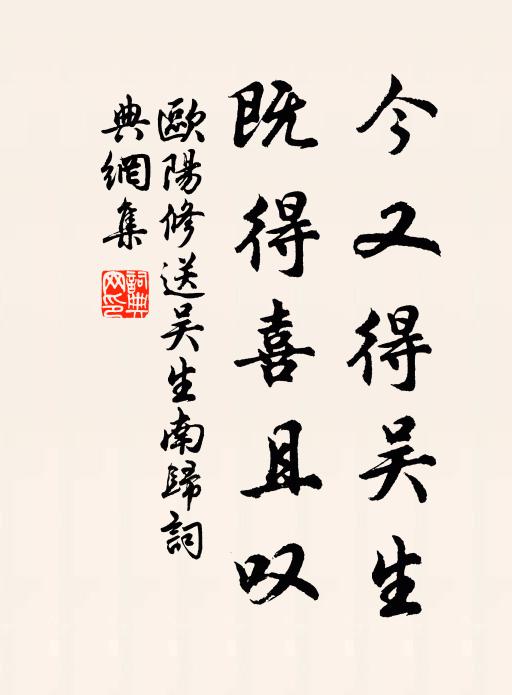 今又得吴生
既得喜且叹
歐陽修送吴生南歸詞
典網集
詞典网印